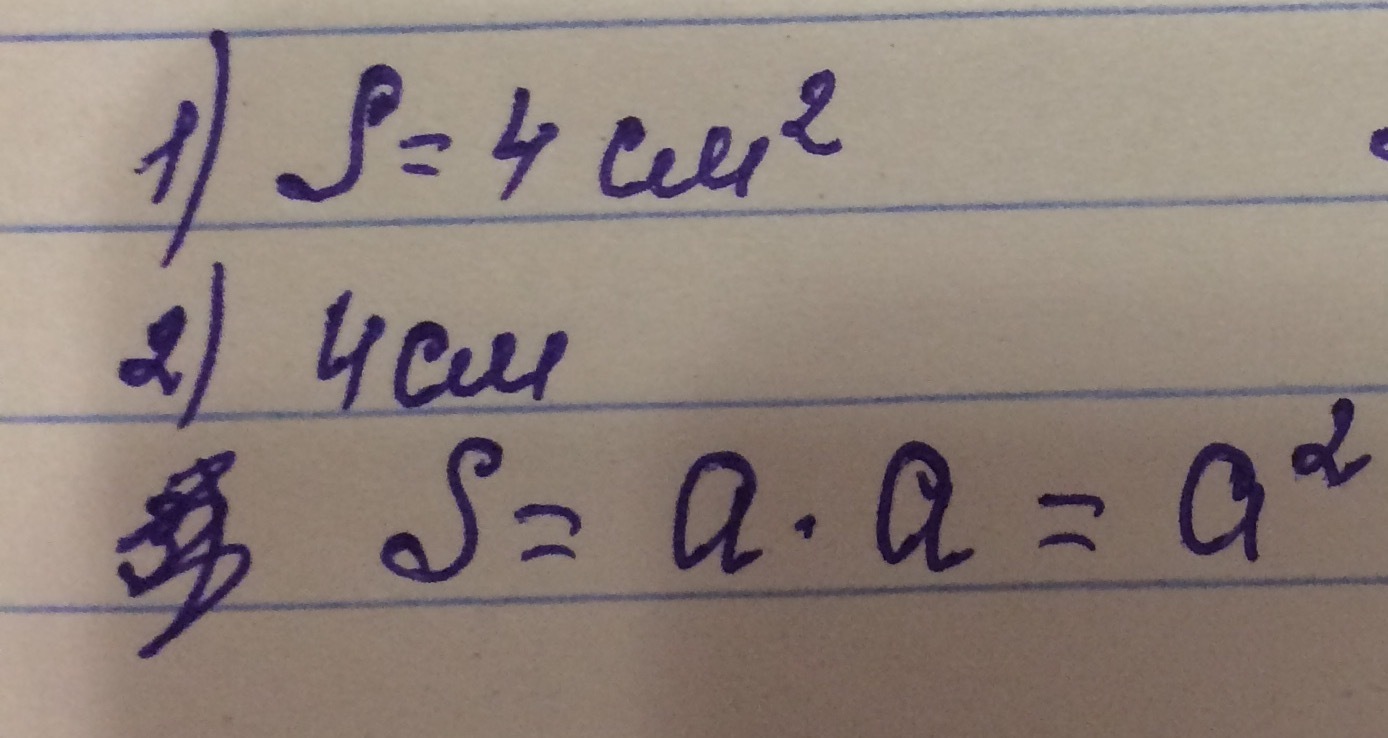 1) S = 4 см²
2) 4 см
S = a · a = a²